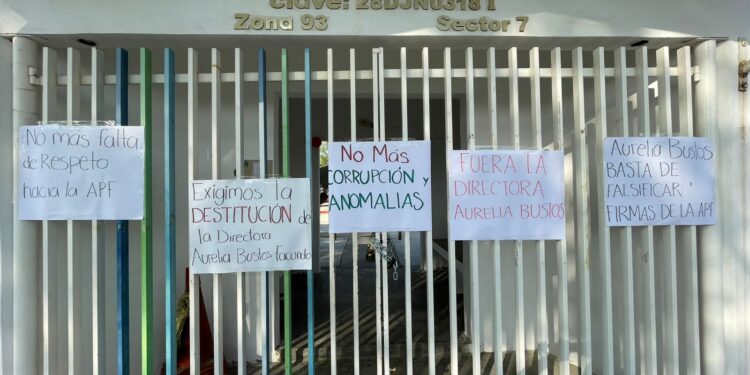 Clave: 28DJN0318 I
Zona 93 Sector 7
No mas falta
de Respeto
hacia la APF
Exigimos la
DESTITUCIÓN de
la Directora
Aurelia Bustos facundo
No Más
CORRUPCIÓN y
ANOMALIAS
FUERA LA
DIRECTORA
AURELIA BUSTOS
Aurelia Bustos
BASTA DE
FALSIFICAR
FIRMAS DE LA APF